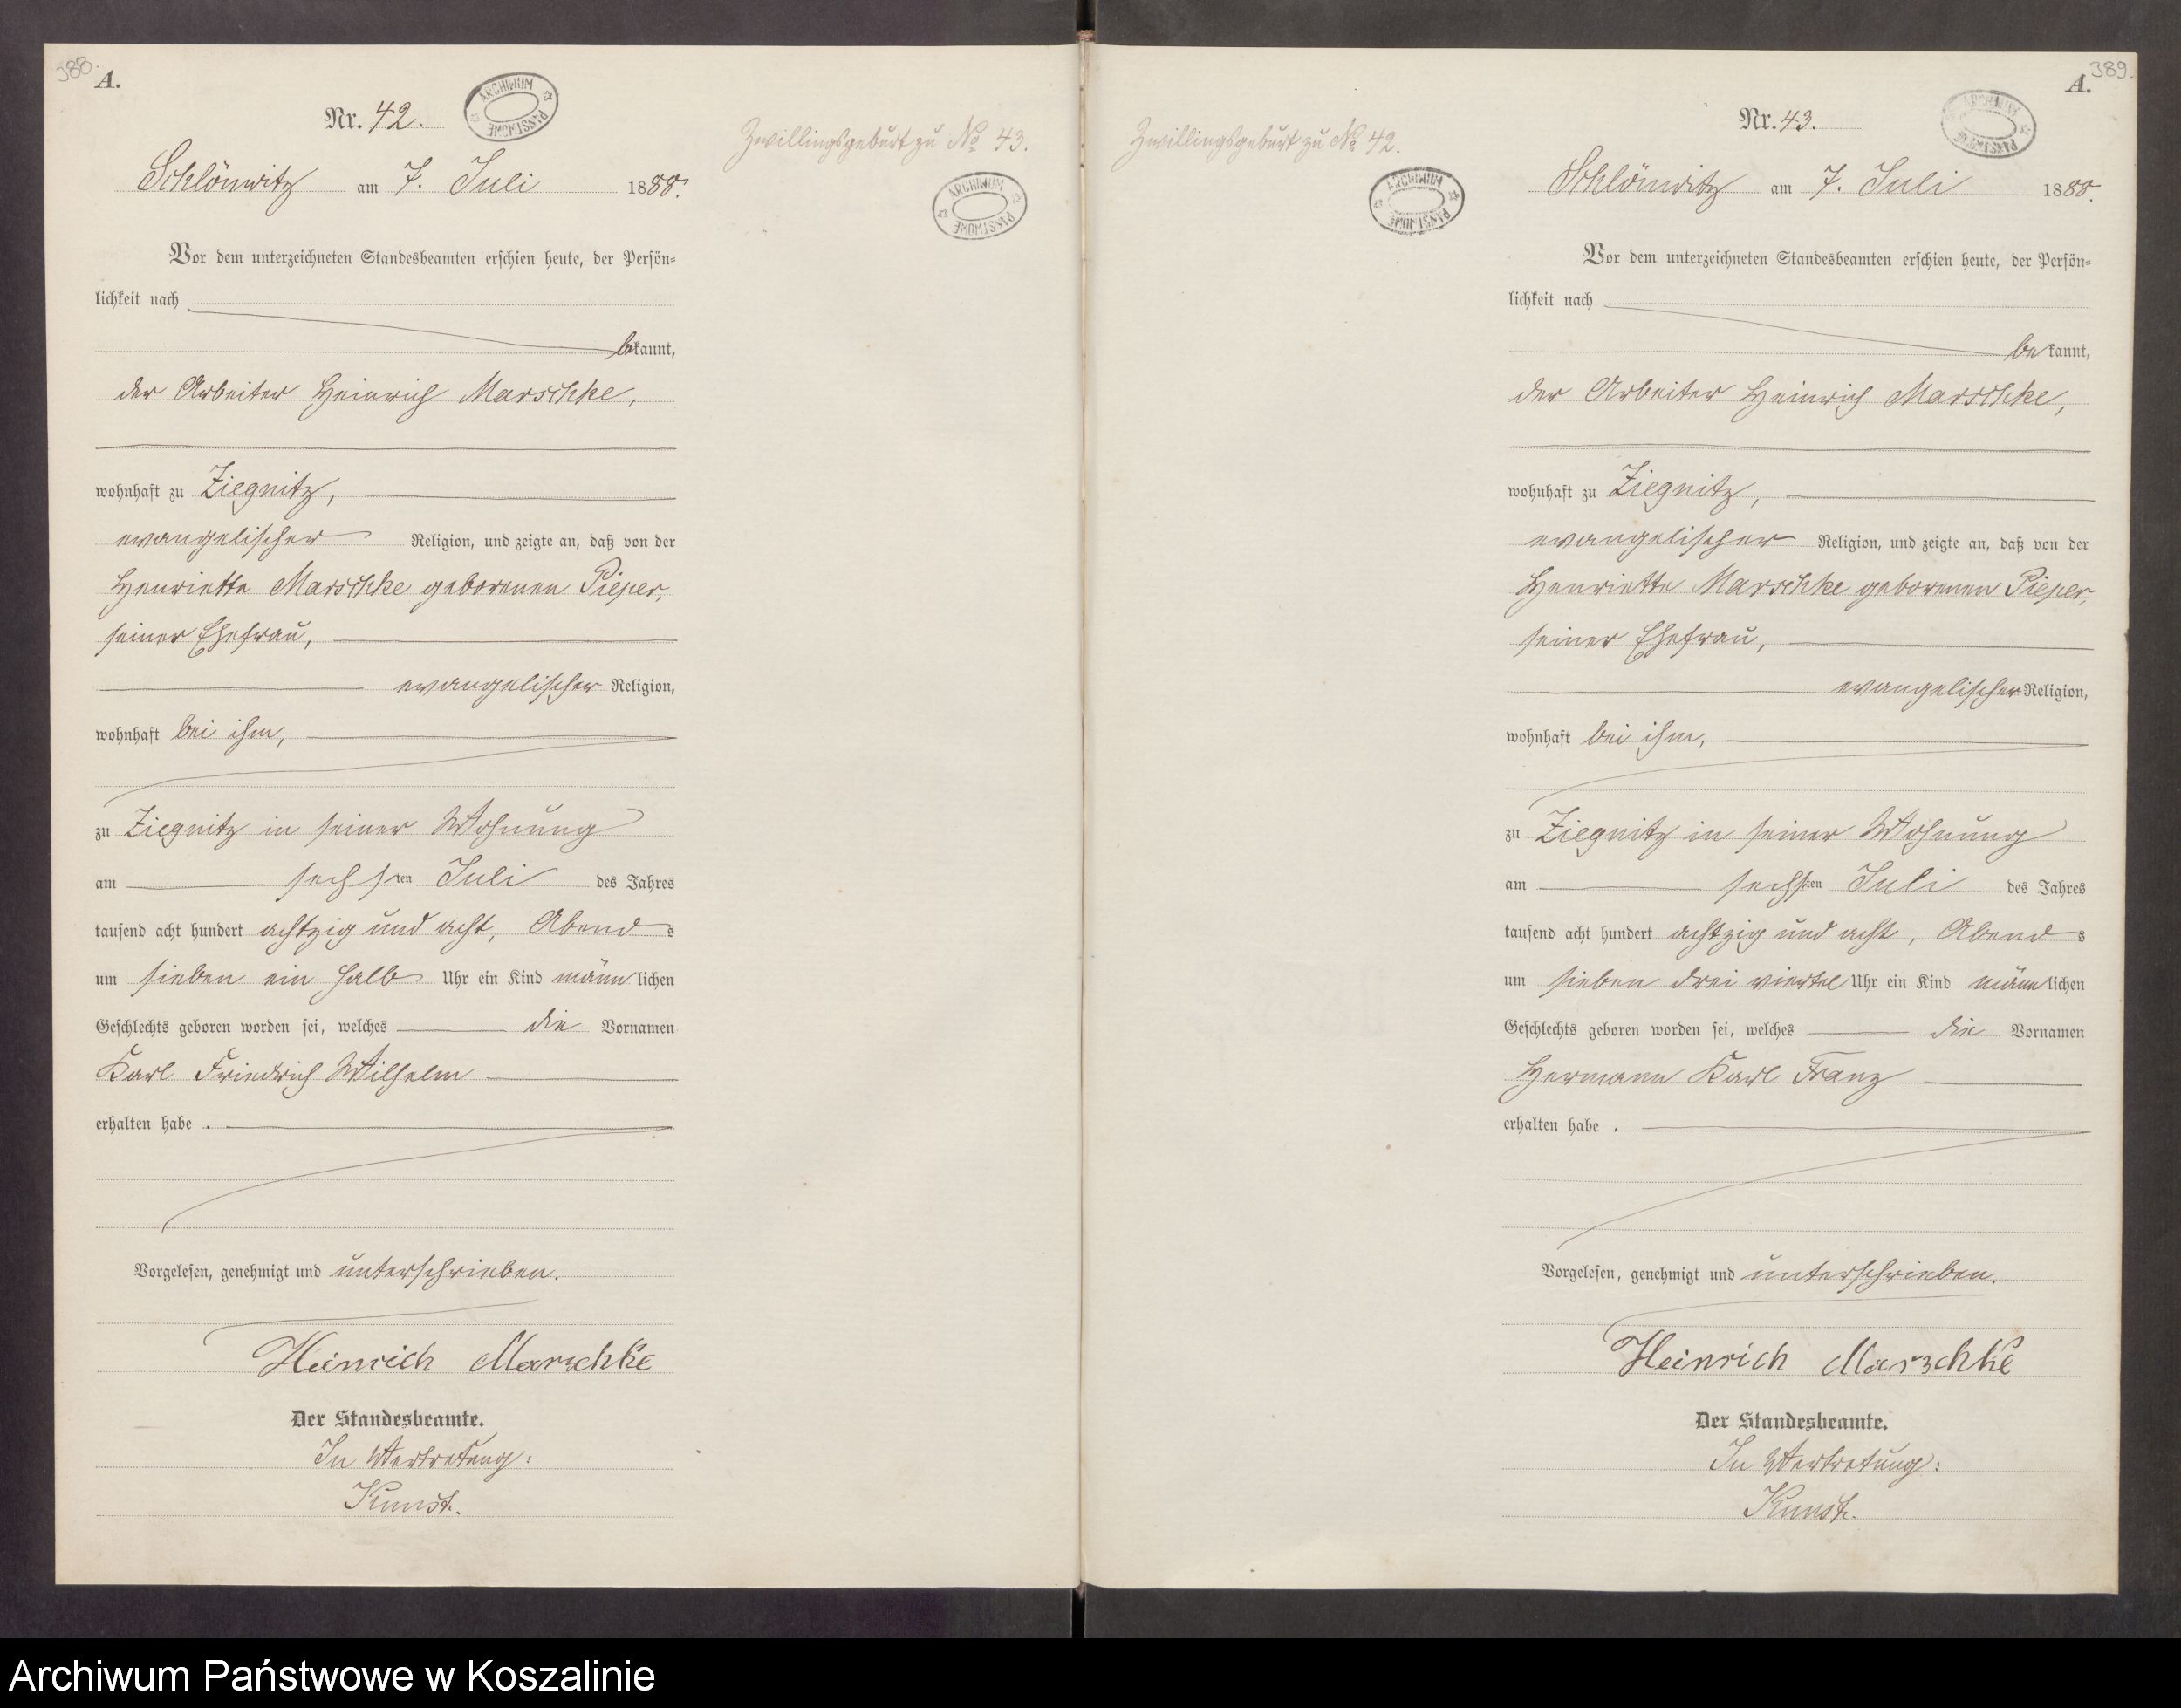 388.
A.
Nr. 42.
ARCHIWUM PAŃSTWOWE
Schlönwitz am 7. Juli 1888.
Zwillingsgeburt zu No 43.
ARCHIWUM PAŃSTWOWE
Vor dem unterzeichneten Standesbeamten erschien heute, der Persön-
lichkeit nach
bekannt,
der Arbeiter Heinrich Marschke,
wohnhaft zu Ziegnitz,
evangelischer Religion, und zeigte an, daß von der
Henriette Marschke geborenen Pieper,
seiner Ehefrau,
evangelischer Religion,
wohnhaft bei ihm,
zu Ziegnitz in seiner Wohnung
am sechsten Juli des Jahres
tausend acht hundert achtzig und acht, Abends
um sieben ein halb Uhr ein Kind männlichen
Geschlechts geboren worden sei, welches die Vornamen
Karl Friedrich Wilhelm
erhalten habe.
Vorgelesen, genehmigt und unterschrieben.
Heinrich Marschke
Der Standesbeamte.
In Vertretung:
Kunst.
389.
A.
Nr. 43.
ARCHIWUM PAŃSTWOWE
Zwillingsgeburt zu No 42.
ARCHIWUM PAŃSTWOWE
Schlönwitz am 7. Juli 1888.
Vor dem unterzeichneten Standesbeamten erschien heute, der Persön-
lichkeit nach
bekannt,
der Arbeiter Heinrich Marschke,
wohnhaft zu Ziegnitz,
evangelischer Religion, und zeigte an, daß von der
Henriette Marschke geborenen Pieper,
seiner Ehefrau,
evangelischer Religion,
wohnhaft bei ihm,
zu Ziegnitz in seiner Wohnung
am sechsten Juli des Jahres
tausend acht hundert achtzig und acht, Abends
um sieben drei viertel Uhr ein Kind männlichen
Geschlechts geboren worden sei, welches die Vornamen
Hermann Karl Franz
erhalten habe.
Vorgelesen, genehmigt und unterschrieben.
Heinrich Marschke
Der Standesbeamte.
In Vertretung:
Kunst.
Archiwum Państwowe w Koszalinie